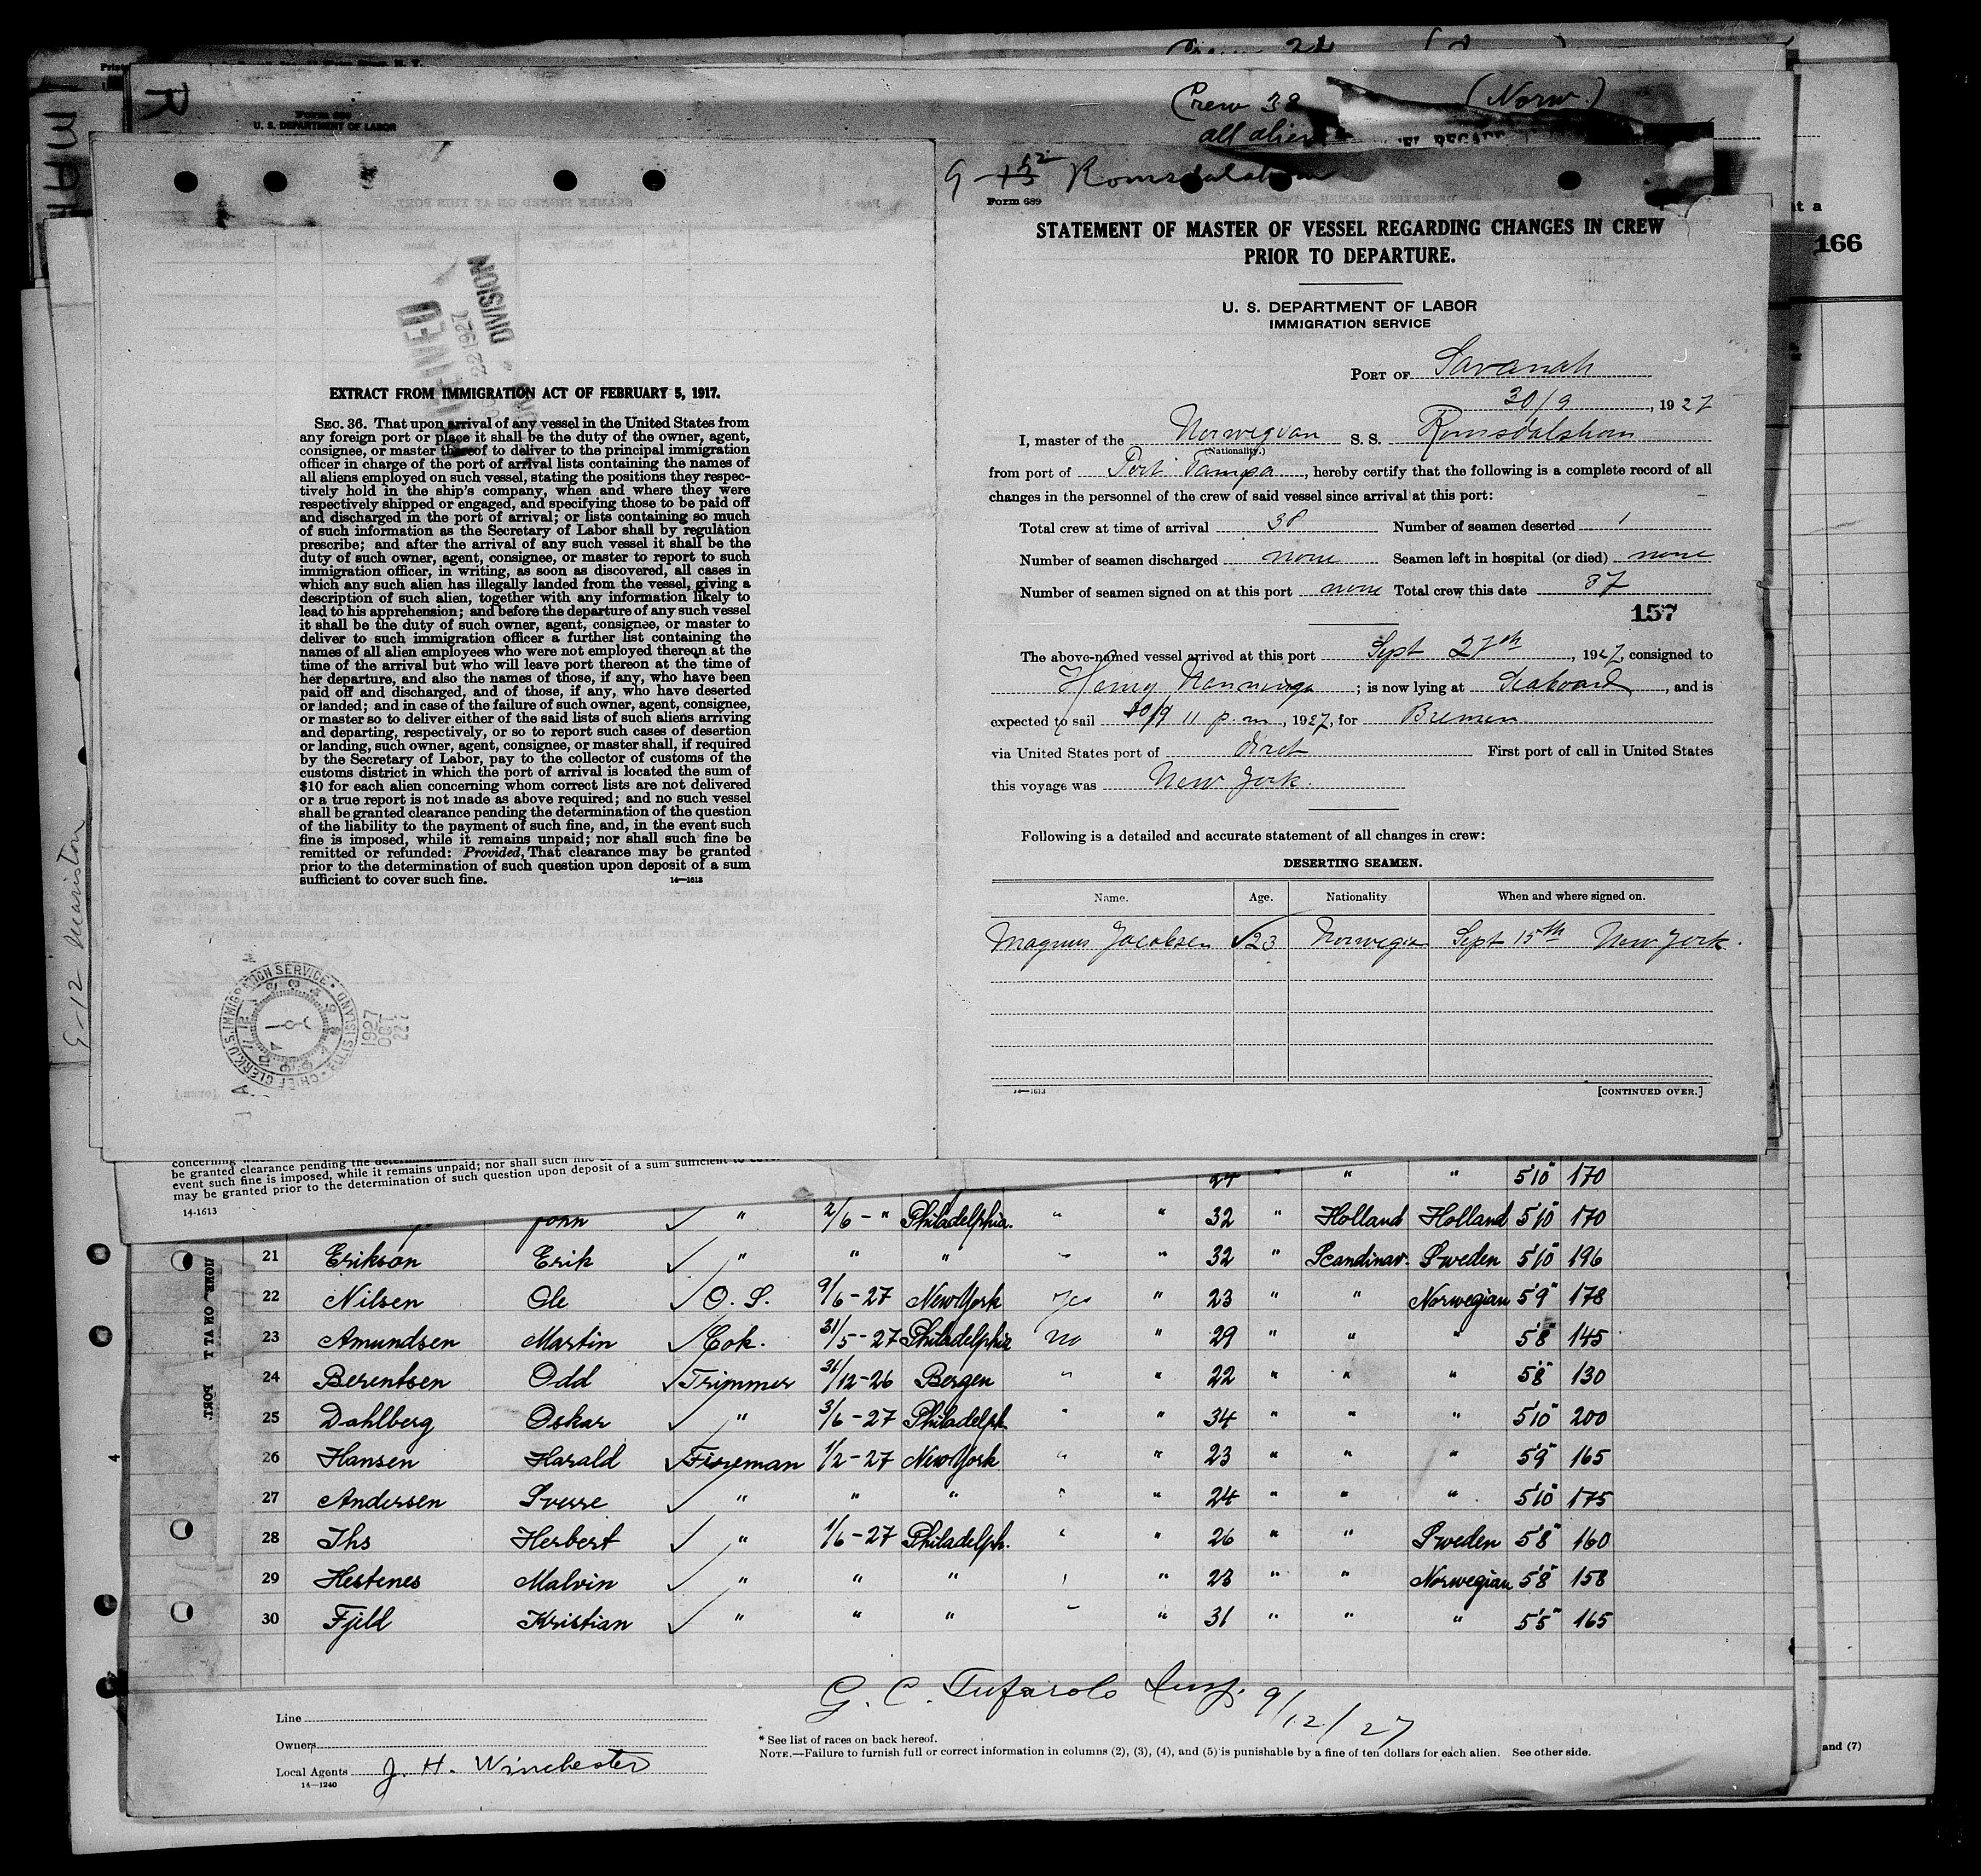 (Norw.)
Crew 38
all alien
R
Form 689
U. S. DEPARTMENT OF LABOR
166
9-12 Romsdalshorn
Form 689
STATEMENT OF MASTER OF VESSEL REGARDING CHANGES IN CREW
PRIOR TO DEPARTURE.
U. S. DEPARTMENT OF LABOR
IMMIGRATION SERVICE
PORT OF Savanah
30/9, 1927
I, master of the Norwegian S. S. Romsdalshorn
(Nationality.)
from port of Port Tampa, hereby certify that the following is a complete record of all
changes in the personnel of the crew of said vessel since arrival at this port:
Total crew at time of arrival 38 Number of seamen deserted 1
Number of seamen discharged none Seamen left in hospital (or died) none
Number of seamen signed on at this port none Total crew this date 37
157
The above-named vessel arrived at this port Sept 27th, 1927, consigned to
Henry Nanninga; is now lying at Seaboard, and is
expected to sail 30/9 11 p.m, 1927, for Bremen
via United States port of direct First port of call in United States
this voyage was New York.
Following is a detailed and accurate statement of all changes in crew:
DESERTING SEAMEN.
Name. Age. Nationality When and where signed on.
Magnus Jacobsen 23 Norwegian Sept 15th New York.
14—1613 [CONTINUED OVER.]
DIVISION
22 1927
EXTRACT FROM IMMIGRATION ACT OF FEBRUARY 5, 1917.
SEC. 36. That upon arrival of any vessel in the United States from
any foreign port or place it shall be the duty of the owner, agent,
consignee, or master thereof to deliver to the principal immigration
officer in charge of the port of arrival lists containing the names of
all aliens employed on such vessel, stating the positions they respec-
tively hold in the ship's company, when and where they were
respectively shipped or engaged, and specifying those to be paid off
and discharged in the port of arrival; or lists containing so much
of such information as the Secretary of Labor shall by regulation
prescribe; and after the arrival of any such vessel it shall be the
duty of such owner, agent, consignee, or master to report to such
immigration officer, in writing, as soon as discovered, all cases in
which any such alien has illegally landed from the vessel, giving a
description of such alien, together with any information likely to
lead to his apprehension; and before the departure of any such vessel
it shall be the duty of such owner, agent, consignee, or master to
deliver to such immigration officer a further list containing the
names of all alien employees who were not employed thereon at the
time of the arrival but who will leave port thereon at the time of
her departure, and also the names of those, if any, who have been
paid off and discharged, and of those, if any, who have deserted
or landed; and in case of the failure of such owner, agent, consignee,
or master so to deliver either of the said lists of such aliens arriving
and departing, respectively, or so to report such cases of desertion
or landing, such owner, agent, consignee, or master shall, if required
by the Secretary of Labor, pay to the collector of customs of the
customs district in which the port of arrival is located the sum of
$10 for each alien concerning whom correct lists are not delivered
or a true report is not made as above required; and no such vessel
shall be granted clearance pending the determination of the question
of the liability to the payment of such fine, and, in the event such
fine is imposed, while it remains unpaid; nor shall such fine be
remitted or refunded: Provided, That clearance may be granted
prior to the determination of such question upon deposit of a sum
sufficient to cover such fine.
14—1613
CHIEF CLERK U.S. IMMIGRATION SERVICE ELLIS ISLAND
1927
OCT
22
be granted clearance pending the determination of the question
event such fine is imposed, while it remains unpaid; nor shall such fine
may be granted prior to the determination of such question upon deposit of a sum sufficient to
14-1613
24 " " " 5'10" 170
John " 2/6 - " Philadelphia. " " 32 " Holland Holland 5'10" 170
21 Erikson Erik " " " " " 32 " Scandinav. Sweden 5'10" 196
22 Nilsen Ole O. S. 9/6-27 New York Yes " 23 " " Norwegian 5'9" 178
23 Amundsen Martin Cok. 31/5-27 Philadelphia no " 29 " " " 5'8" 145
24 Berentsen Odd Trimmer 31/12-26 Bergen " " 22 " " " 5'8" 130
25 Dahlberg Oskar " 3/6-27 Philadelph " " 34 " " " 5'10" 200
26 Hansen Harald Fireman 1/2-27 New York " " 23 " " " 5'9" 165
27 Andersen Sverre " " " " " 24 " " " 5'10" 175
28 Ihs Herbert " 1/6-27 Philadelph. " " 26 " " Sweden 5'8" 160
29 Hestenes Malvin " " " " " 23 " " Norwegian 5'8" 158
30 Fjeld Kristian " " " " " 31 " " " 5'5" 165
G. C. Tufarolo Insp. 9/12/27
Line
Owners
Local Agents J. H. Winchester
14—1240
* See list of races on back hereof.
NOTE.—Failure to furnish full or correct information in columns (2), (3), (4), and (5) is punishable by a fine of ten dollars for each alien. See other side.
and (7)